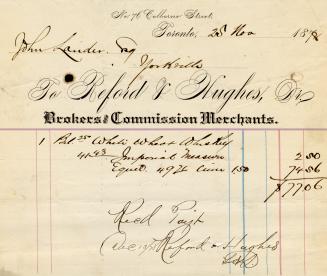 No. 76 Colborne Street,
Toronto, 25 Nov 187
John Lander Esq
Yorkville
To Reford & Hughes, Dr.
Brokers and Commission Merchants.
1 Bbl White Wheat Whiskey 2 50
41 43 Imperial Measure
Equal 49 71 Wine 150 74 56
$77 06
Recd Payt
Reford & Hughes